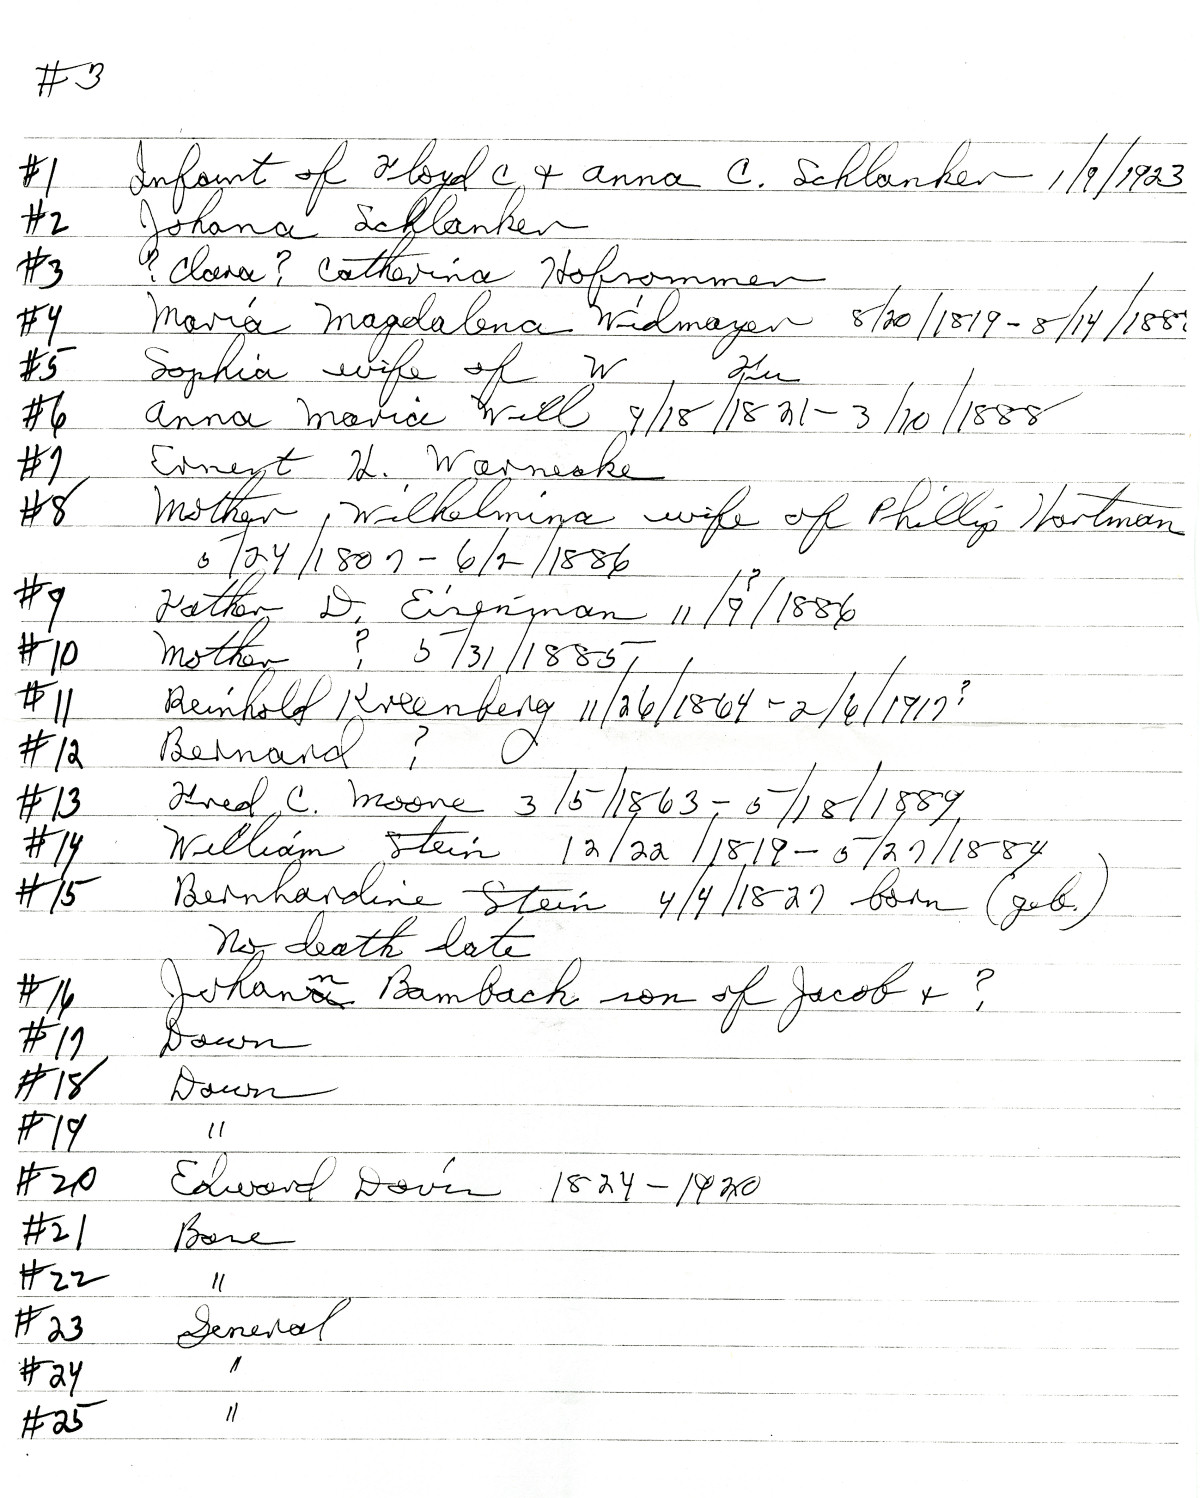 #3
#1 Infant of Floyd C + Anna C. Schlanker 1/9/1923
#2 Johana Schlanker
#3 ? Clara? Catherina Hofrommer
#4 Maria Magdalena Widmayer 8/20/1819 - 8/14/188
#5 Sophia wife of W
#6 Anna Maria Will 9/18/1821 - 3/10/1888
#7 Ernest H. Warnecke
#8 Mother, Wilhelmina wife of Phillip Hartman
5/24/1807 - 6/2/1886
#9 Father D. Eisenman 11/9?/1886
#10 Mother ? 5/31/1885
#11 Reinhold Kreenberg 11/26/1864 - 2/6/1917?
#12 Bernard ?
#13 Fred C. Moore 3/5/1863 - 5/18/1889
#14 William Stein 12/22/1819 - 5/27/1884
#15 Bernhardine Stein 4/4/1827 born (geb.)
No death date
#16 Johann Bambach son of Jacob + ?
#17 Down
#18 Down
#19 "
#20 Edward Davis 1824 - 1920
#21 Base
#22 "
#23 General
#24 "
#25 "